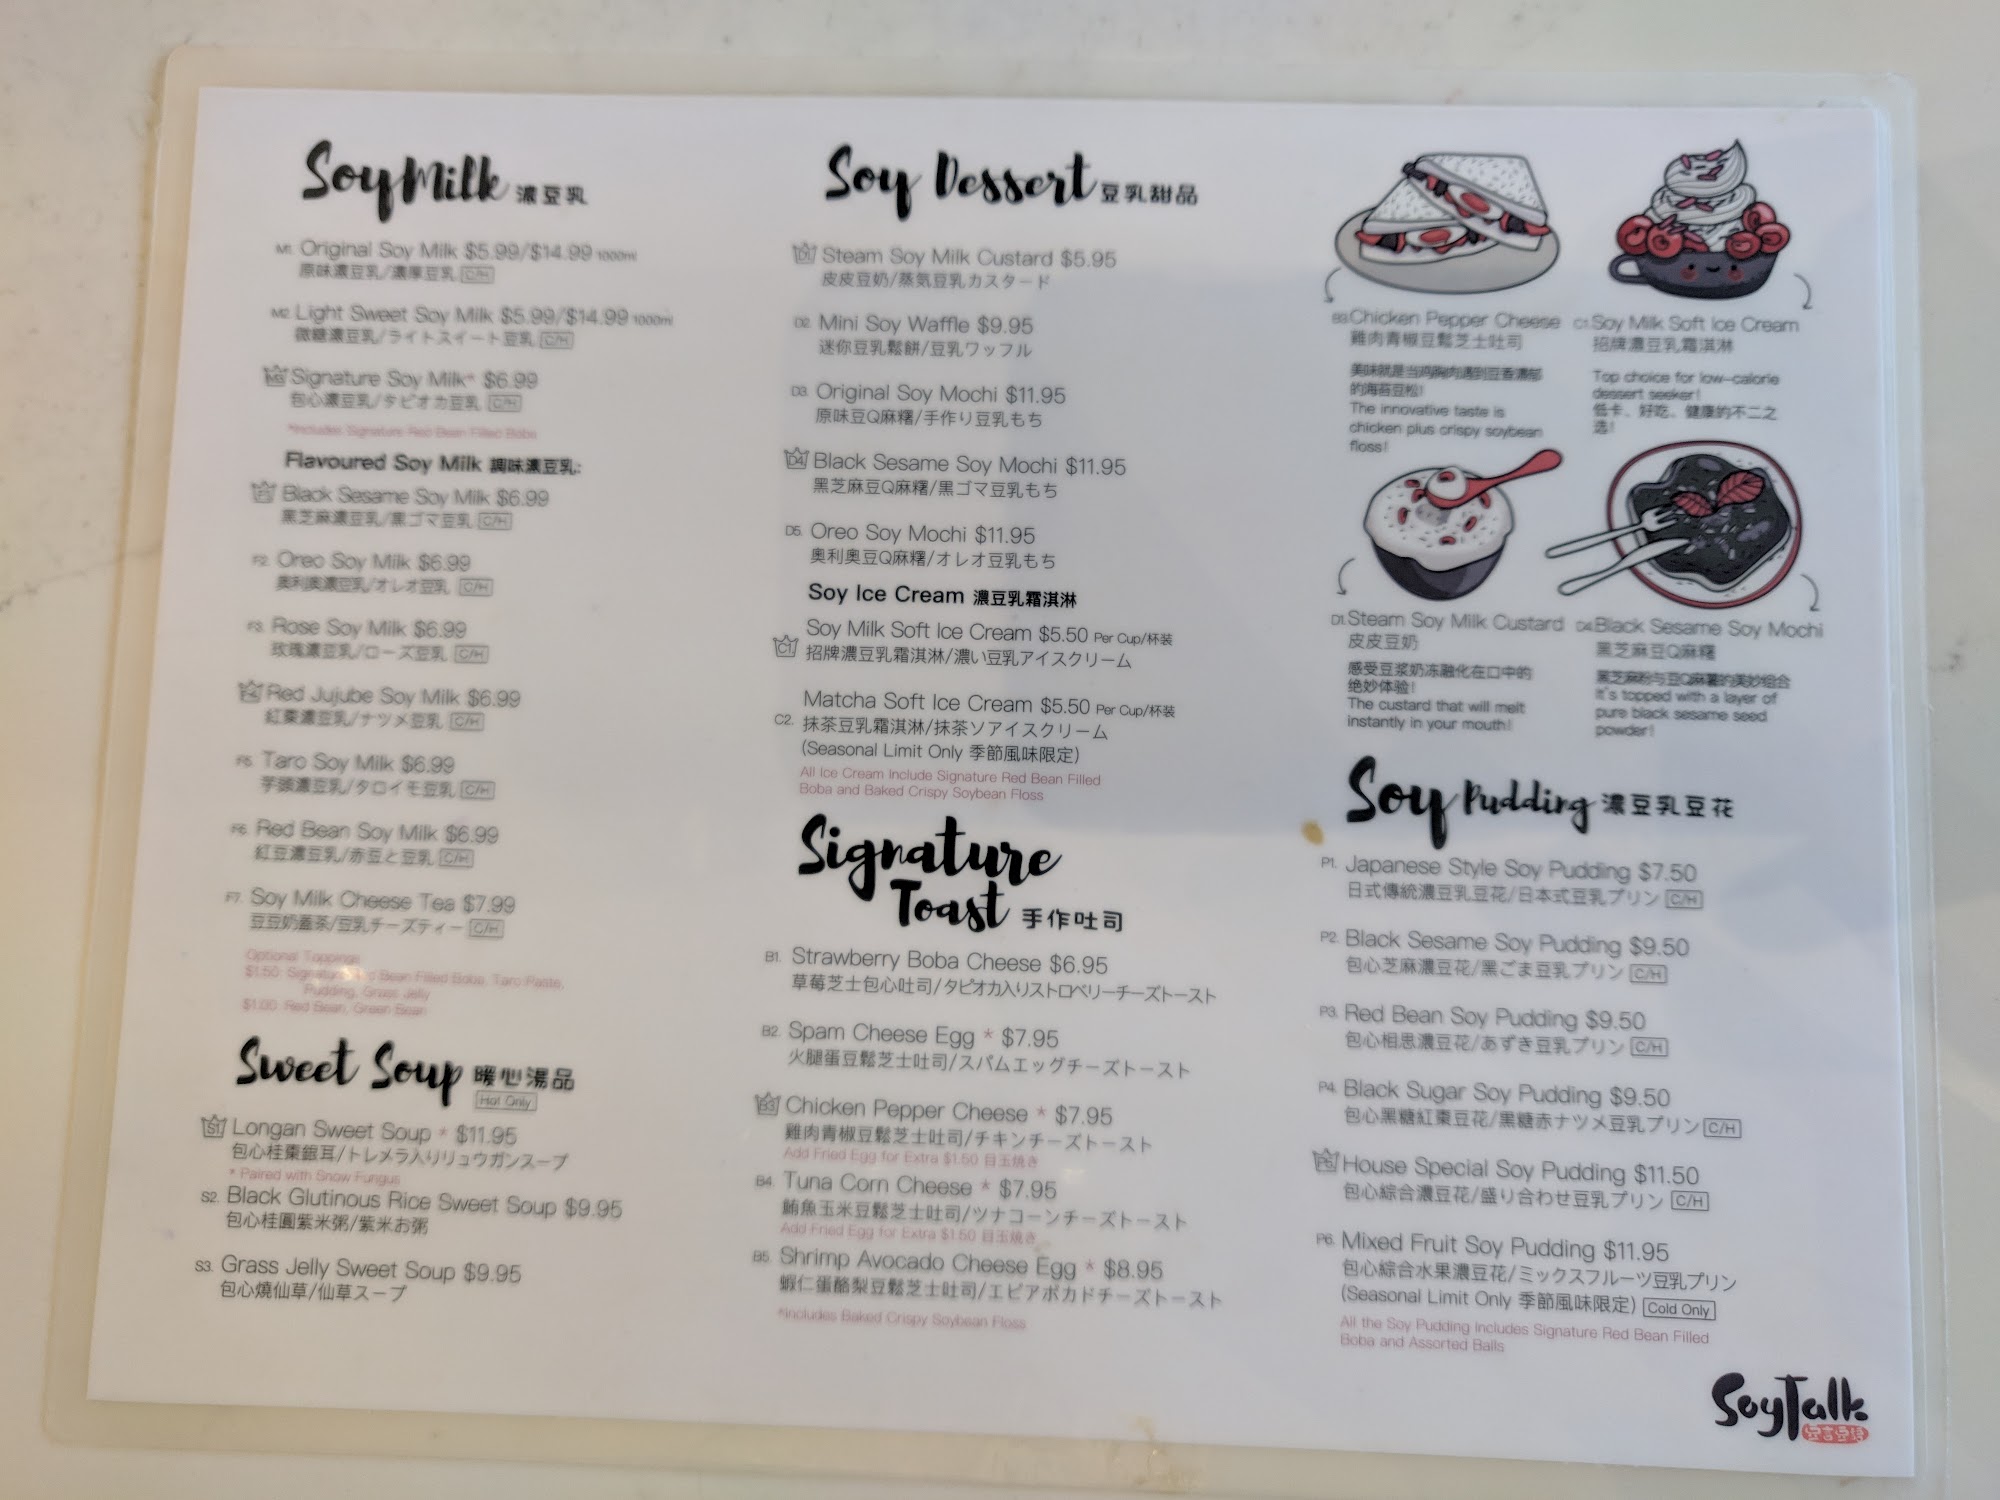 SoyMilk 濃豆乳
M1. Original Soy Milk $5.99/$14.99 1000ml
原味濃豆乳/濃厚豆乳 C/H
M2. Light Sweet Soy Milk $5.99/$14.99 1000ml
微糖濃豆乳/ライトスイート豆乳 C/H
M3 Signature Soy Milk* $6.99
包心濃豆乳/タピオカ豆乳 C/H
*Includes Signature Red Bean Filled Boba
Flavoured Soy Milk 調味濃豆乳:
F1 Black Sesame Soy Milk $6.99
黑芝麻濃豆乳/黒ゴマ豆乳 C/H
F2. Oreo Soy Milk $6.99
奧利奧濃豆乳/オレオ豆乳 C/H
F3. Rose Soy Milk $6.99
玫瑰濃豆乳/ローズ豆乳 C/H
F4 Red Jujube Soy Milk $6.99
紅棗濃豆乳/ナツメ豆乳 C/H
F5. Taro Soy Milk $6.99
芋頭濃豆乳/タロイモ豆乳 C/H
F6. Red Bean Soy Milk $6.99
紅豆濃豆乳/赤豆と豆乳 C/H
F7. Soy Milk Cheese Tea $7.99
豆豆奶蓋茶/豆乳チーズティー C/H
Optional Toppings
$1.50: Signature Red Bean Filled Boba, Taro Paste,
Pudding, Grass Jelly
$1.00: Red Bean, Green Bean
Sweet Soup 暖心湯品
Hot Only
S1 Longan Sweet Soup * $11.95
包心桂棗銀耳/トレメラ入りリュウガンスープ
* Paired with Snow Fungus
S2. Black Glutinous Rice Sweet Soup $9.95
包心桂圓紫米粥/紫米お粥
S3. Grass Jelly Sweet Soup $9.95
包心燒仙草/仙草スープ
Soy Dessert 豆乳甜品
D1 Steam Soy Milk Custard $5.95
皮皮豆奶/蒸気豆乳カスタード
D2. Mini Soy Waffle $9.95
迷你豆乳鬆餅/豆乳ワッフル
D3. Original Soy Mochi $11.95
原味豆Q麻糬/手作り豆乳もち
D4 Black Sesame Soy Mochi $11.95
黑芝麻豆Q麻糬/黒ゴマ豆乳もち
D5. Oreo Soy Mochi $11.95
奧利奧豆Q麻糬/オレオ豆乳もち
Soy Ice Cream 濃豆乳霜淇淋
Soy Milk Soft Ice Cream $5.50 Per Cup/杯裝
C1 招牌濃豆乳霜淇淋/濃い豆乳アイスクリーム
Matcha Soft Ice Cream $5.50 Per Cup/杯装
C2. 抹茶豆乳霜淇淋/抹茶ソアイスクリーム
(Seasonal Limit Only 季節風味限定)
All Ice Cream Include Signature Red Bean Filled
Boba and Baked Crispy Soybean Floss
Signature
Toast 手作吐司
B1. Strawberry Boba Cheese $6.95
草莓芝士包心吐司/タピオカ入りストロベリーチーズトースト
B2. Spam Cheese Egg * $7.95
火腿蛋豆鬆芝士吐司/スパムエッグチーズトースト
B3 Chicken Pepper Cheese * $7.95
雞肉青椒豆鬆芝士吐司/チキンチーズトースト
Add Fried Egg for Extra $1.50 目玉焼き
B4. Tuna Corn Cheese * $7.95
鮪魚玉米豆鬆芝士吐司/ツナコーンチーズトースト
Add Fried Egg for Extra $1.50 目玉焼き
B5. Shrimp Avocado Cheese Egg * $8.95
蝦仁蛋酪梨豆鬆芝士吐司/エビアボカドチーズトースト
*Includes Baked Crispy Soybean Floss
B3 Chicken Pepper Cheese
雞肉青椒豆鬆芝士吐司
美味就是当鸡胸肉遇到豆香濃郁
的海苔豆松!
The innovative taste is
chicken plus crispy soybean
floss!
C1 Soy Milk Soft Ice Cream
招牌濃豆乳霜淇淋
Top choice for low-calorie
dessert seeker!
低卡、好吃、健康的不二之
选!
D1. Steam Soy Milk Custard
皮皮豆奶
感受豆浆奶冻融化在口中的
绝妙体验!
The custard that will melt
instantly in your mouth!
D4 Black Sesame Soy Mochi
黑芝麻豆Q麻糬
黑芝麻粉与豆Q麻薯的美妙组合
It's topped with a layer of
pure black sesame seed
powder!
Soy Pudding 濃豆乳豆花
P1. Japanese Style Soy Pudding $7.50
日式傳統濃豆乳豆花/日本式豆乳プリン C/H
P2. Black Sesame Soy Pudding $9.50
包心芝麻濃豆花/黒ごま豆乳プリン C/H
P3. Red Bean Soy Pudding $9.50
包心相思濃豆花/あずき豆乳プリン C/H
P4. Black Sugar Soy Pudding $9.50
包心黑糖紅棗豆花/黒糖赤ナツメ豆乳プリン C/H
P5 House Special Soy Pudding $11.50
包心綜合濃豆花/盛り合わせ豆乳プリン C/H
P6. Mixed Fruit Soy Pudding $11.95
包心綜合水果濃豆花/ミックスフルーツ豆乳プリン
(Seasonal Limit Only 季節風味限定) Cold Only
All the Soy Pudding Includes Signature Red Bean Filled
Boba and Assorted Balls
SoyTalk